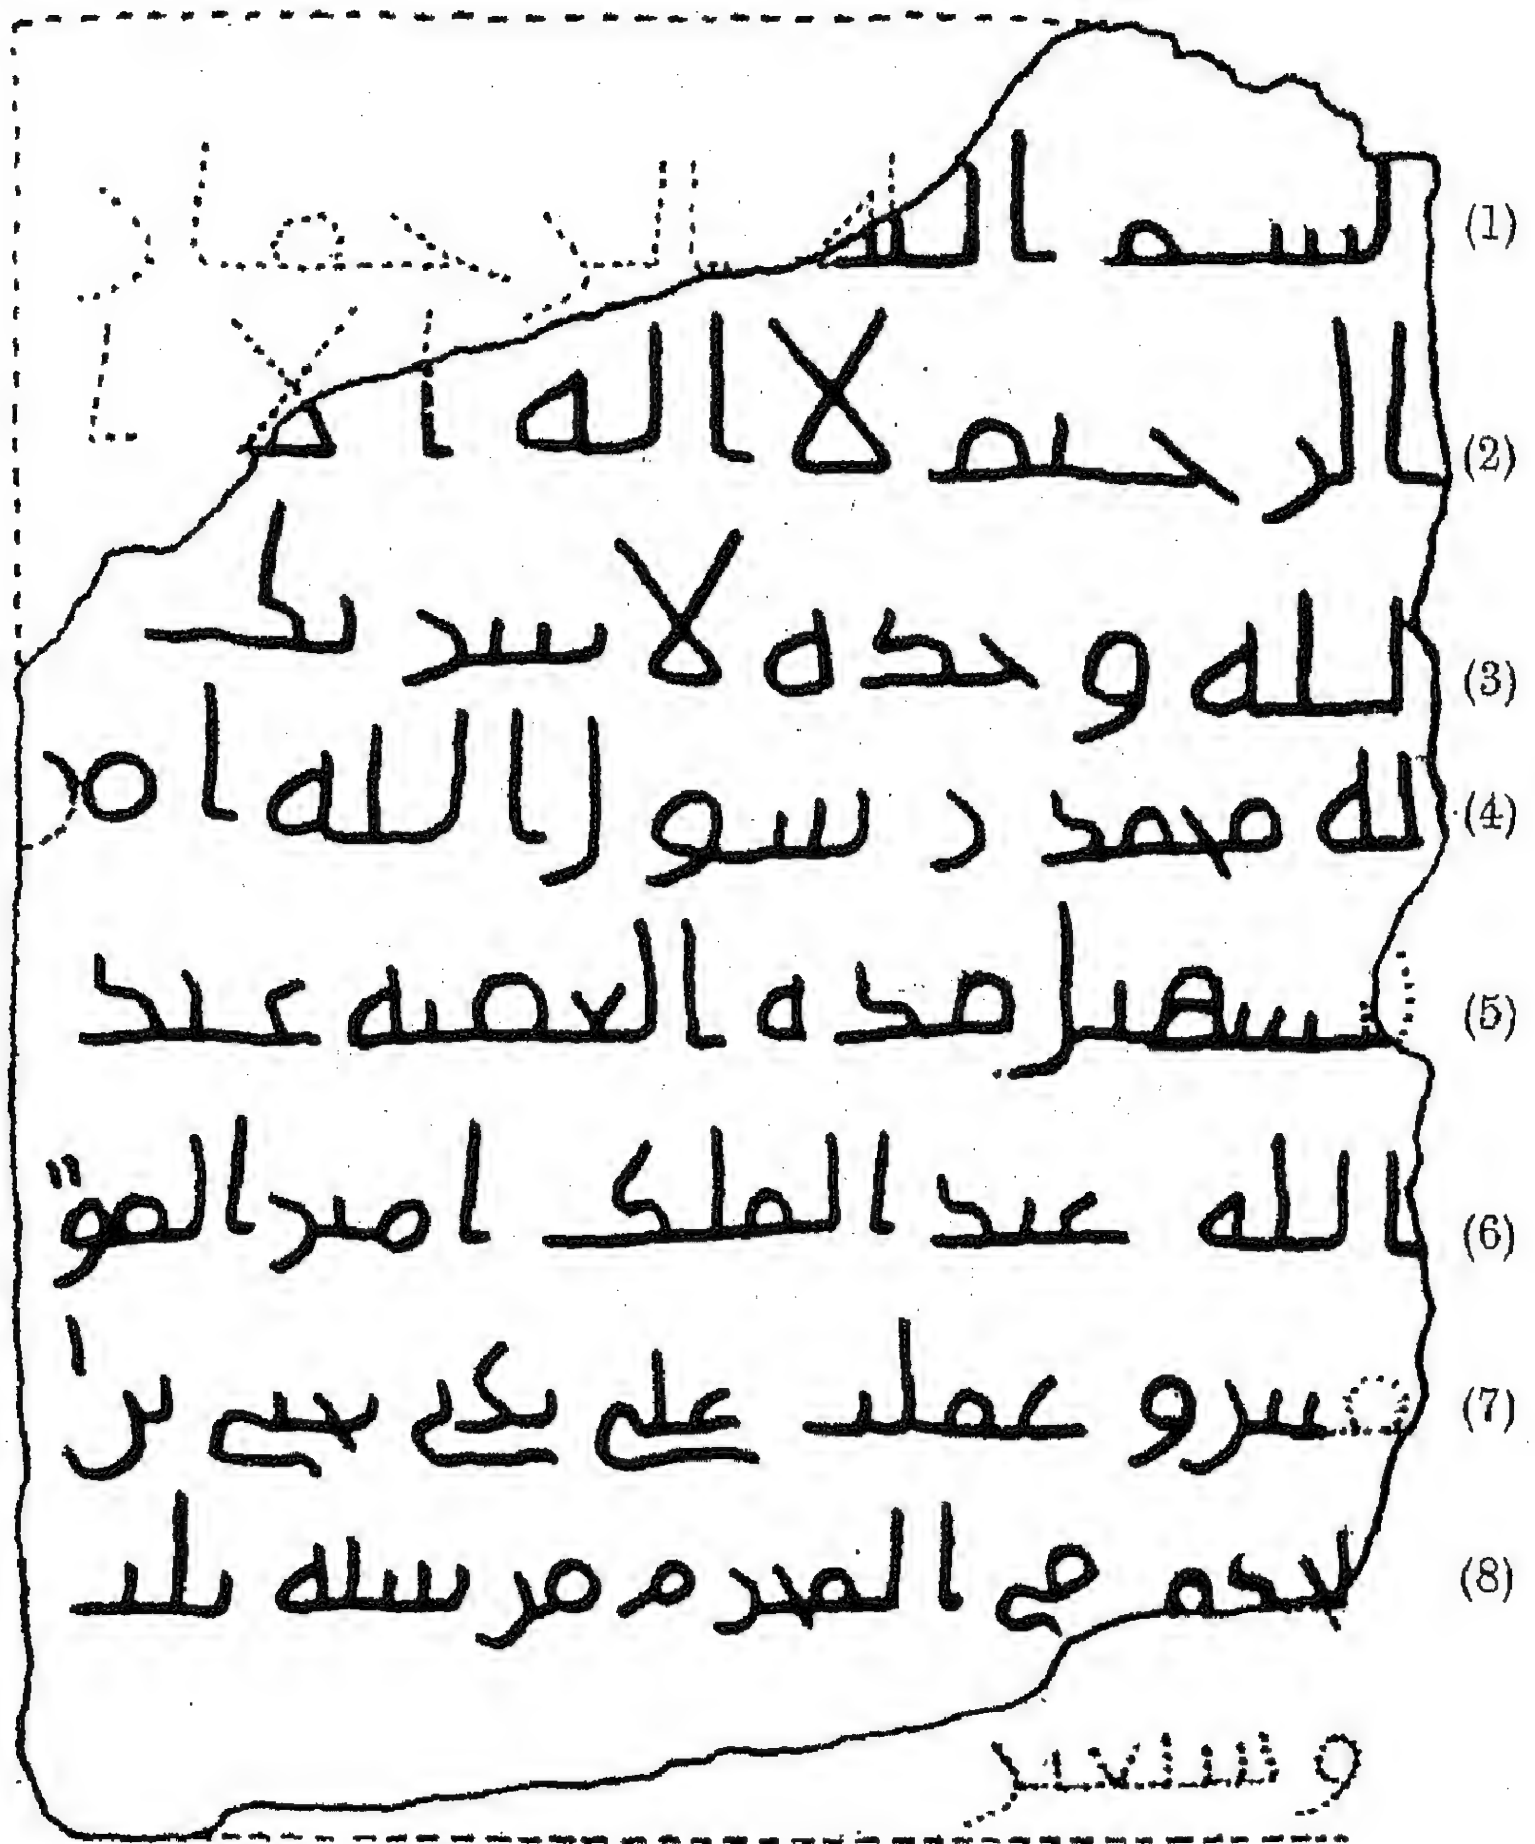 (1) بسم الله الرحمن
(2) الرحيم لا اله الا ا
(3) لله وحده لا شريك
(4) له محمد رسول الله امر
(5) بتسهيل هذه العقبة عبد
(6) الله عبد الملك امير المؤ
(7) منين وعملت على يدي يحيى بن ا
(8) لحكم في المحرم من سنة ثلث
وسبعين